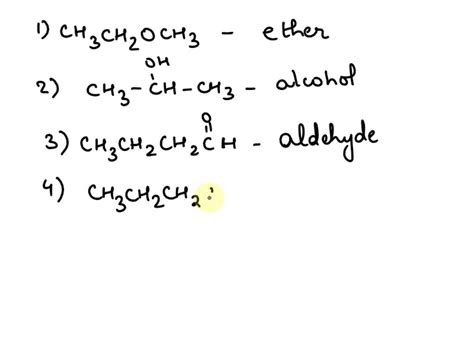 1) CH₃CH₂OCH₃ - ether
OH
2) CH₃-CH-CH₃ - alcohol
O
3) CH₃CH₂CH₂CH - aldehyde
4) CH₃CH₂CH₂